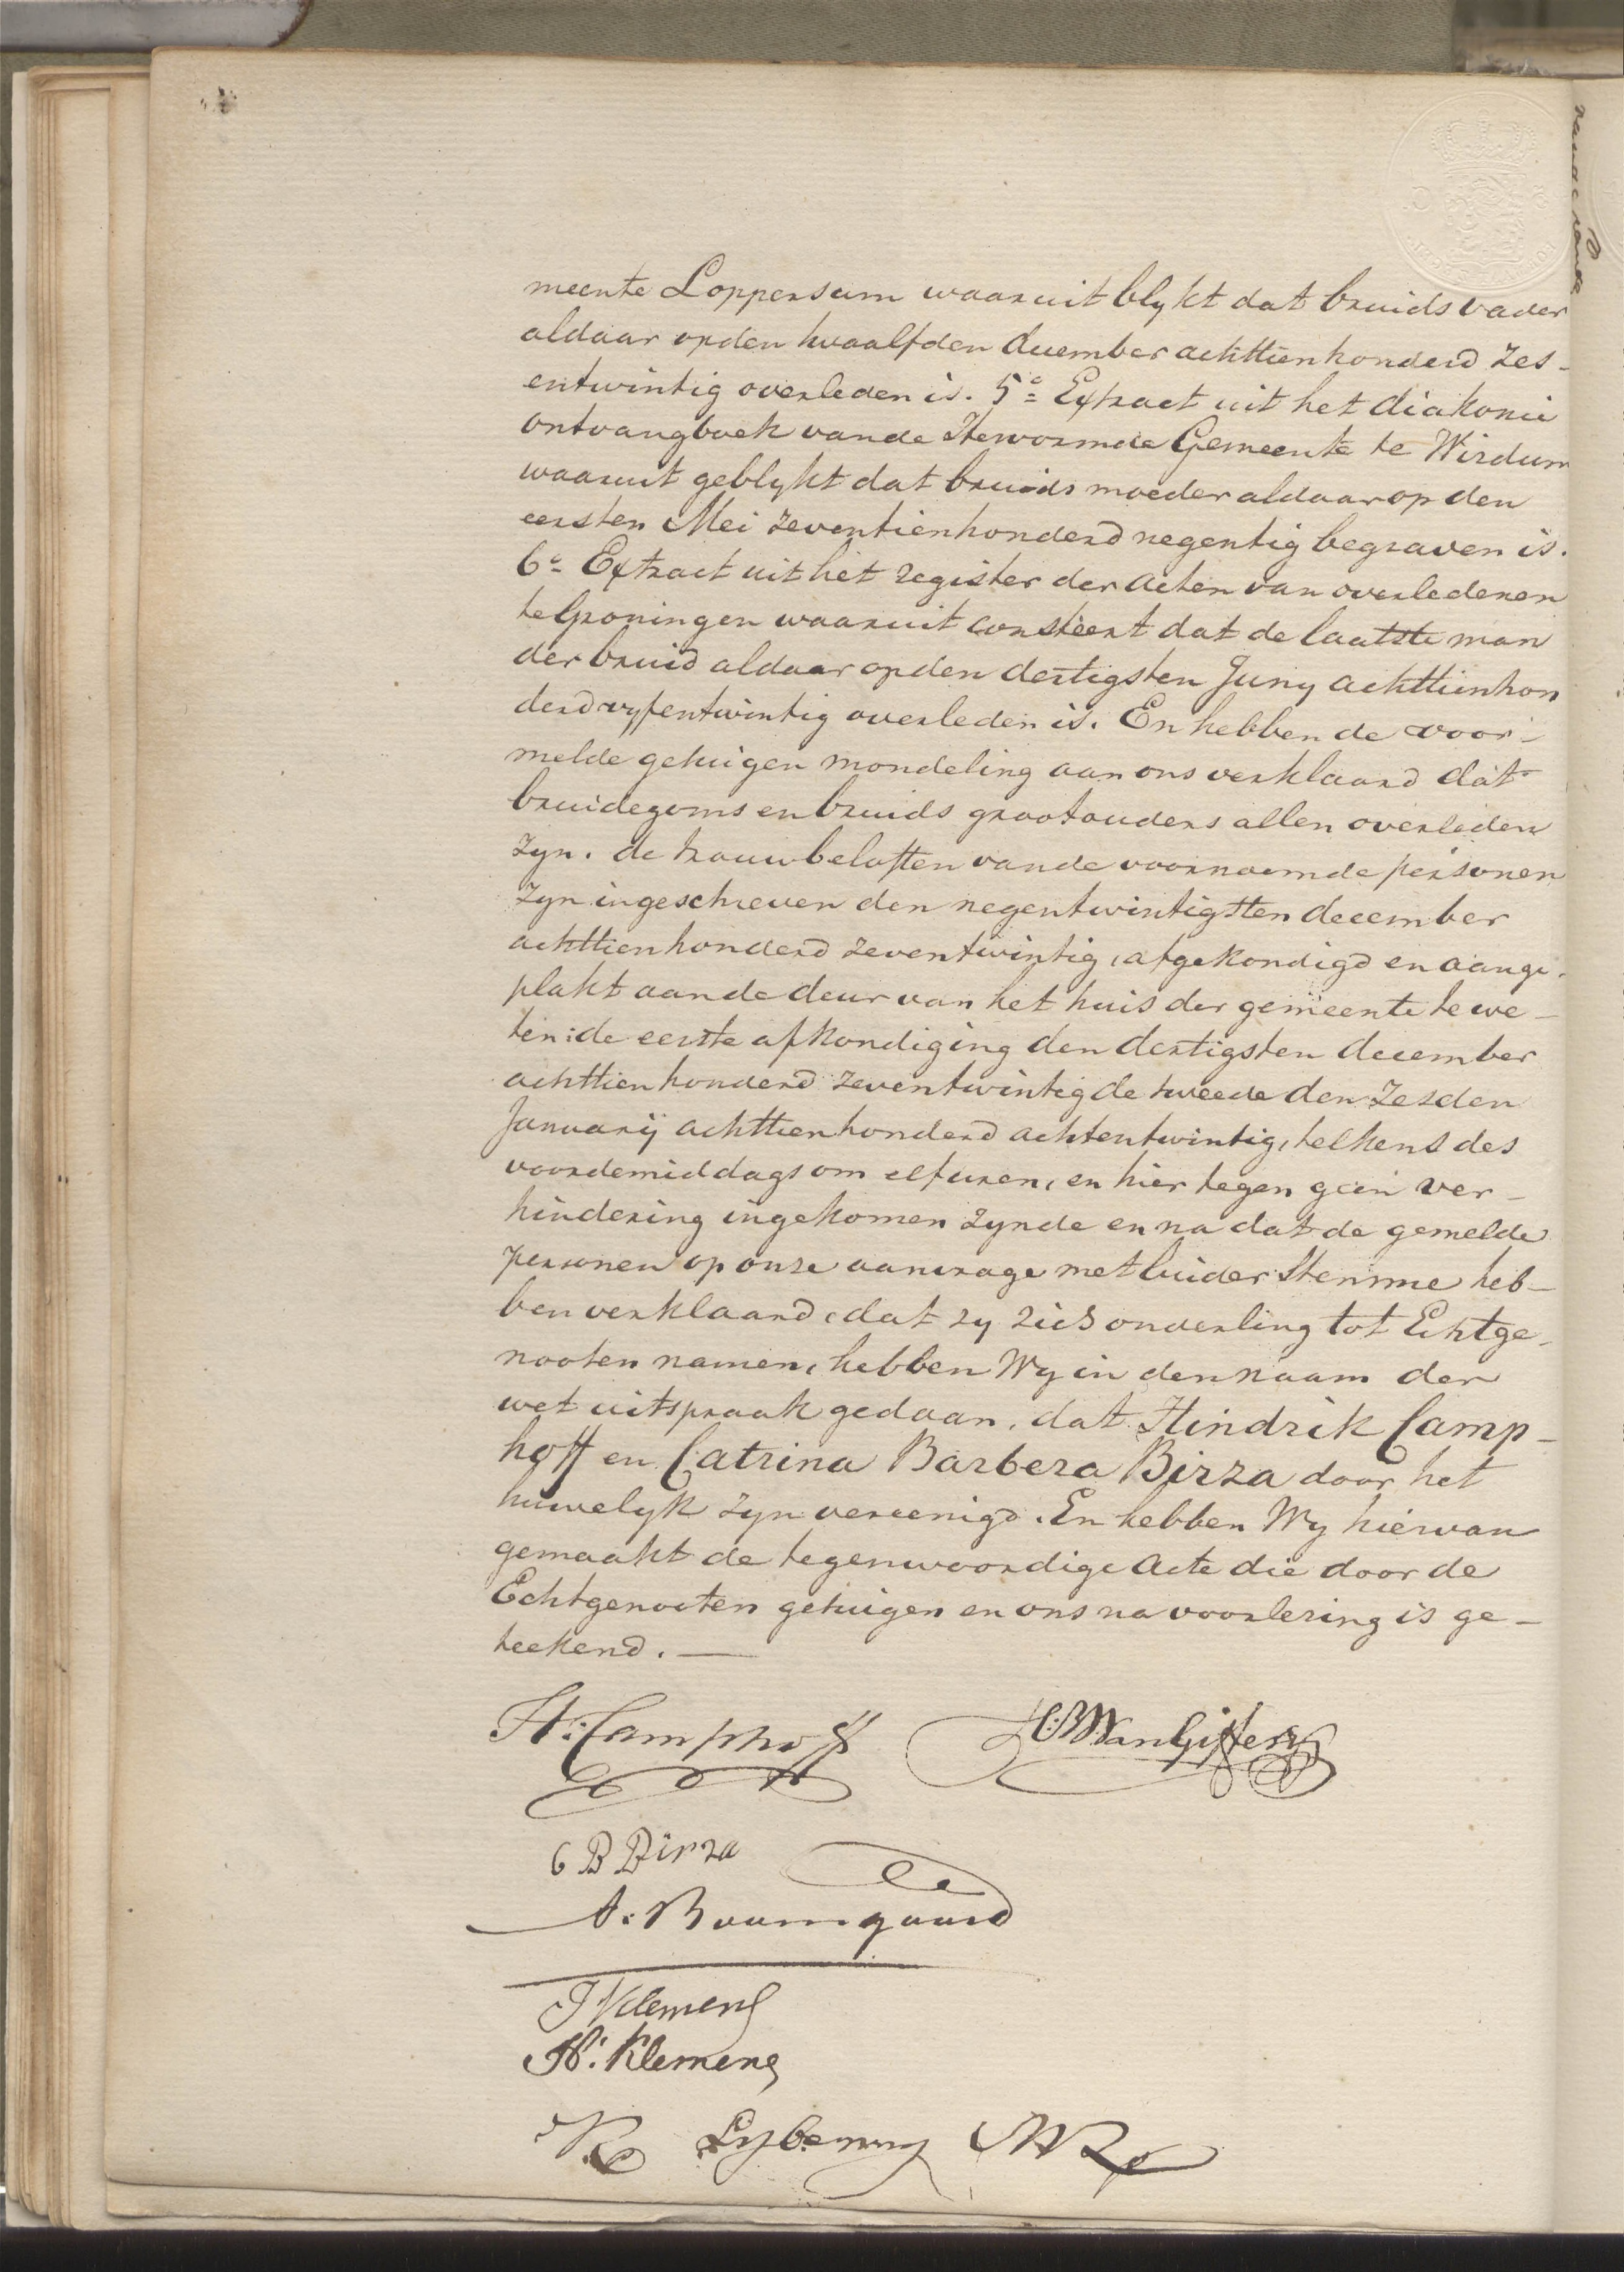 meente Loppersum waaruit blykt dat bruids vader
aldaar op den twaalfden december achttienhonderd zes-
entwintig overleden is. 5e Extract uit het diakonie
ontvangboek van de Hervormde Gemeente te Wirdum
waaruit geblykt dat bruids moeder aldaar op den
eersten Mei zeventienhonderd negentig begraven is.
6e Extract uit het register der acten van overledenen
te Groningen waaruit consteert dat de laatste man
der bruid aldaar op den dertigsten Juny achttienhon
derd vyfentwintig overleden is. En hebben de voor-
melde getuigen mondeling aan ons verklaard dat
bruidegoms en bruids grootouders allen overleden
zyn. de trouwbeloften van de voornoemde personen
zyn ingeschreven den negentwintigsten december
achttienhonderd zeventwintig, afgekondigd en aange-
plakt aan de deur van het huis der gemeente te we-
ten: de eerste afkondiging den dertigsten december
achttienhonderd zeventwintig de tweede den zesden
Januarÿ achttienhonderd achtentwintig, telkens des
voordemiddags om elf uren, en hier tegen geen ver-
hindering ingekomen zynde en na dat de gemelde
personen op onze aanvrage met luider stemme heb-
ben verklaard, dat zy zich onderling tot Echtge-
nooten namen, hebben Wy in den naam der
wet uitspraak gedaan, dat Hindrik Camp-
hoff en Catrina Barbera Birza door het
huwelyk zyn vereenigd. En hebben Wy hiervan
gemaakt de tegenwoordige Acte die door de
Echtgenooten getuigen en ons na voorlezing is ge-
teekend. —
H: Camphoff
van Giffen
C B Birza
A: Boumgaard
J Klemens
H: Klemens